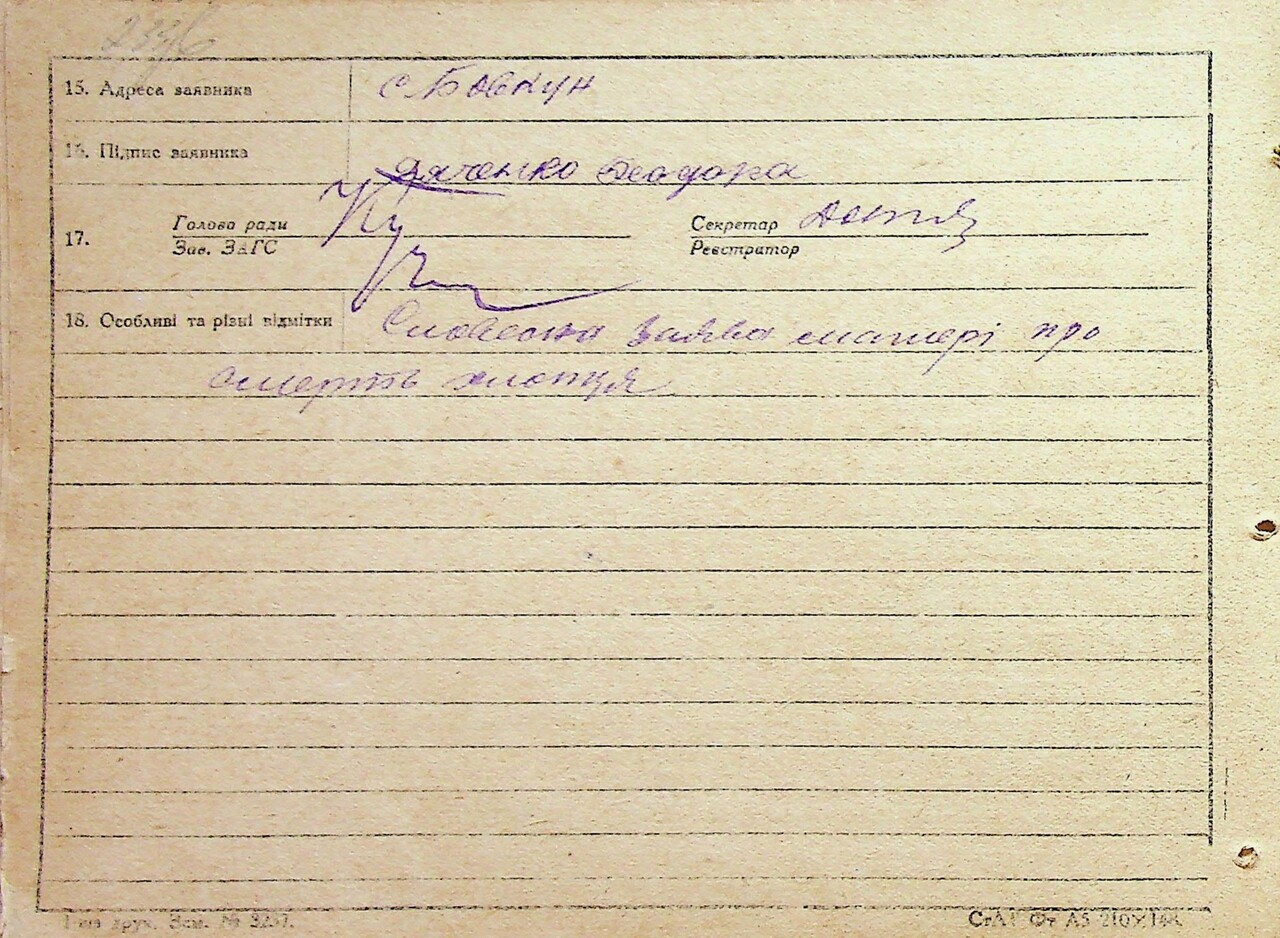 2336
15. Адреса заявника с. Бовкун
16. Підпис заявника Дяченко Теодора
17. Голова ради Секретар
Зав. ЗАГС Реєстратор
18. Особливі та різні відмітки Словесна заява матері про
смерть хлопця
Зам. № 3257.
СтАТ Фт А5 210×148.